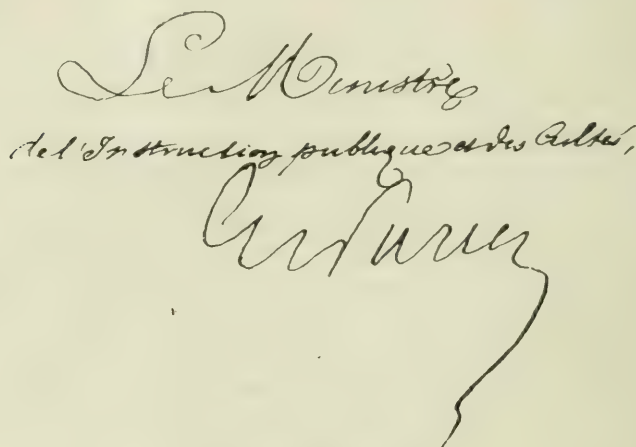 Le Ministre
de l'Instruction publique et des Cultes,